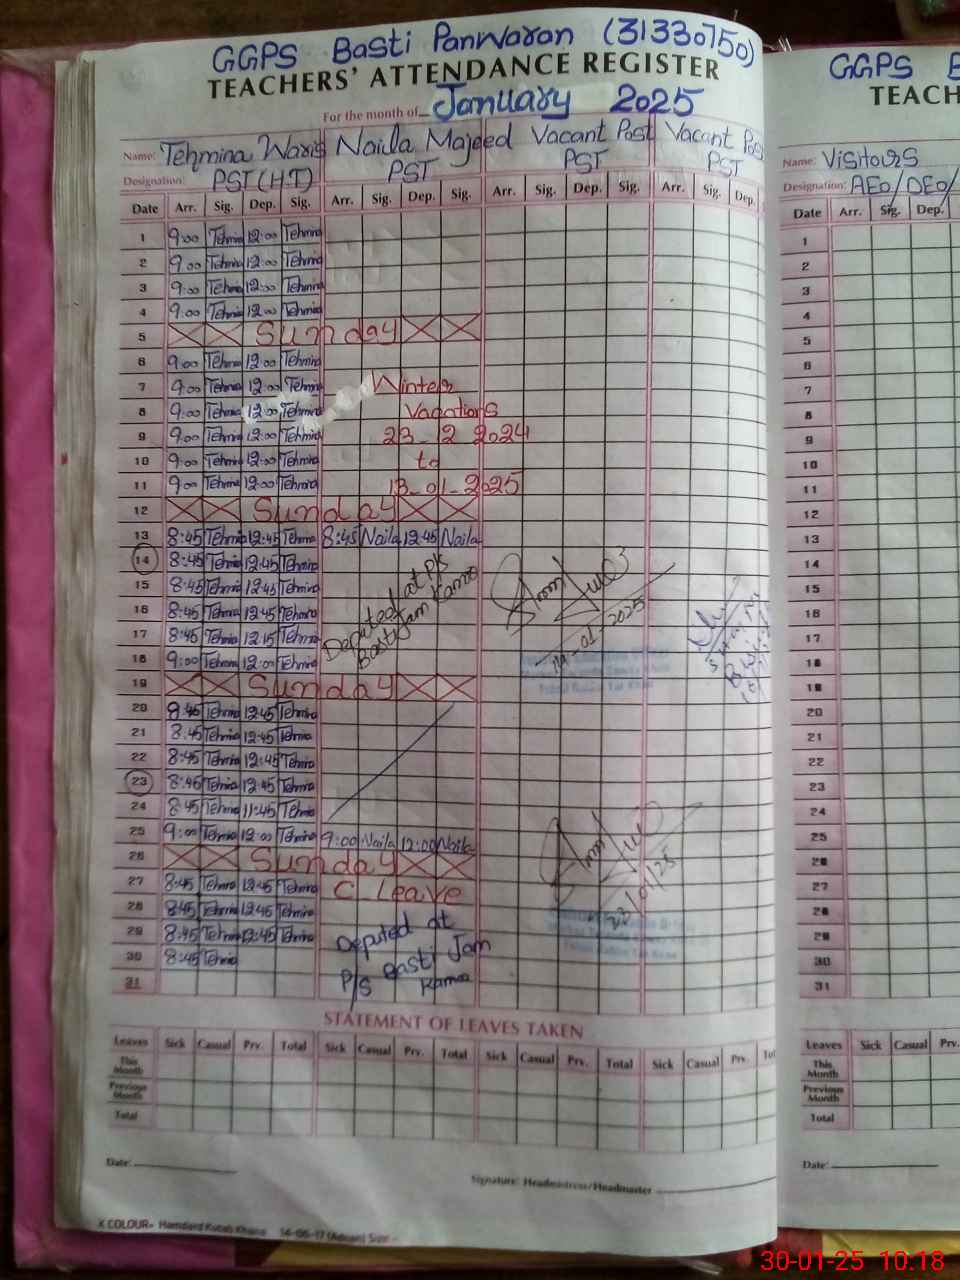 GGPS Basti Panwaran (31330750)
TEACHERS' ATTENDANCE REGISTER
For the month of January 2025
Name: Tehmina Waris Naila Majeed Vacant Post Vacant Pos
Designation: PST (H.T) PST PST PST
Date Arr. Sig. Dep. Sig. Arr. Sig. Dep. Sig. Arr. Sig. Dep. Sig. Arr. Sig. Dep.
1 9:00 Tehmina 12:00 Tehmina
2 9:00 Tehmina 12:00 Tehmina
3 9:00 Tehmina 12:00 Tehmina
4 9:00 Tehmina 12:00 Tehmina
5 Sunday
6 9:00 Tehmina 12:00 Tehmina
7 9:00 Tehmina 12:00 Tehmina Winter
8 9:00 Tehmina 12:00 Tehmina Vacations
9 9:00 Tehmina 12:00 Tehmina 23-12-2024
10 9:00 Tehmina 12:00 Tehmina to
11 9:00 Tehmina 12:00 Tehmina 13-01-2025
12 Sunday
13 8:45 Tehmina 12:45 Tehmina 8:45 Naila 12:45 Naila
14 8:45 Tehmina 12:45 Tehmina
15 8:45 Tehmina 12:45 Tehmina
16 8:45 Tehmina 12:45 Tehmina
17 8:45 Tehmina 12:15 Tehmina
18 9:00 Tehmina 12:00 Tehmina
Deputed at P/S
Basti Jam Ramoo
14-01-2025
19 Sunday
20 8:45 Tehmina 12:45 Tehmina
21 8:45 Tehmina 12:45 Tehmina
22 8:45 Tehmina 12:45 Tehmina
23 8:45 Tehmina 12:45 Tehmina
24 8:45 Tehmina 11:45 Tehmina
25 9:00 Tehmina 12:00 Tehmina 9:00 Naila 12:00 Naila
26 Sunday
27 8:45 Tehmina 12:45 Tehmina C Leave
28 8:45 Tehmina 12:45 Tehmina
29 8:45 Tehmina 12:45 Tehmina
30 8:45 Tehmina
31
Deputed at
P/S Basti Jam
Ramoo
23/01/25
STATEMENT OF LEAVES TAKEN
Leaves Sick Casual Prv. Total Sick Casual Prv. Total Sick Casual Prv. Total Sick Casual Prv. Tot
This Month
Previous Month
Total
Date:
Signature: Headmistress/Headmaster
X COLOUR= Hamdard Kutab Khana 14-06-17 (Adnan) Size -
GGPS B
TEACH
Name: Visitors
Designation: AEO/DEO/
Date Arr. Sig. Dep.
1
2
3
4
5
6
7
8
9
10
11
12
13
14
15
16
17
18
19
20
21
22
23
24
25
26
27
28
29
30
31
Leaves Sick Casual Prv.
This Month
Previous Month
Total
Date:
30-01-25 10:18